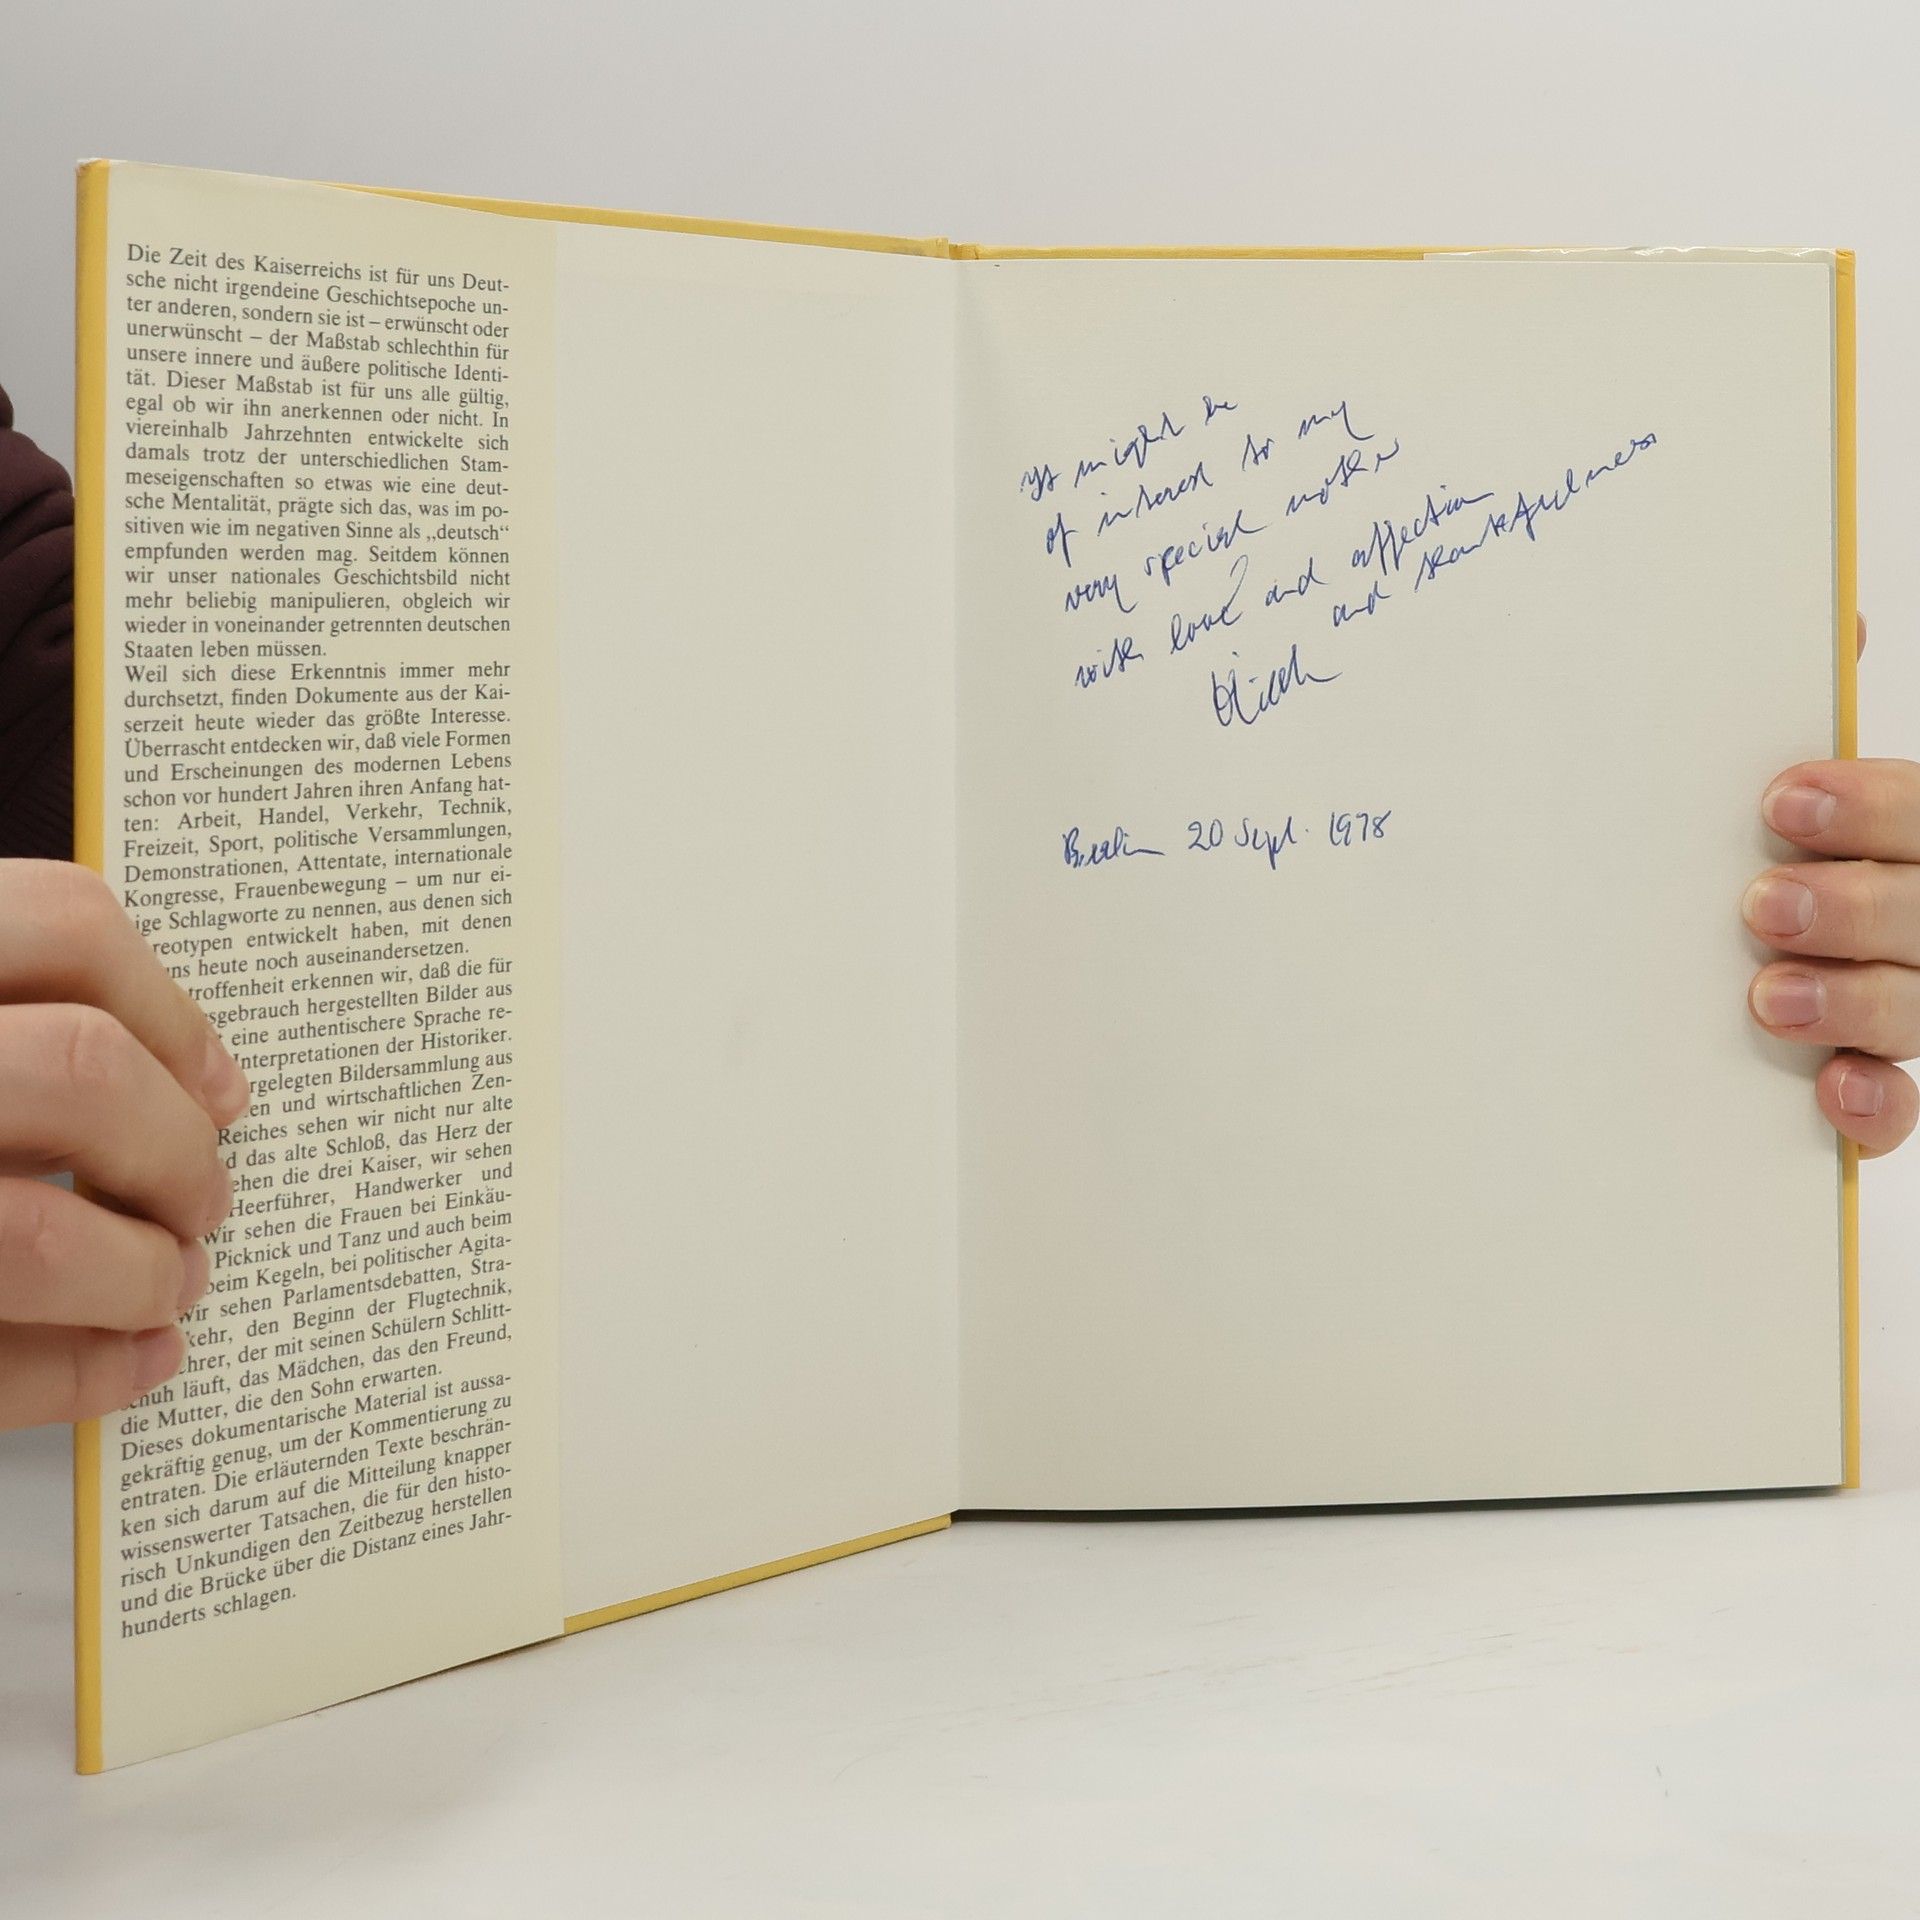 Die Zeit des Kaiserreichs ist für uns Deut-
sche nicht irgendeine Geschichtsepoche un-
ter anderen, sondern sie ist – erwünscht oder
unerwünscht – der Maßstab schlechthin für
unsere innere und äußere politische Identi-
tät. Dieser Maßstab ist für uns alle gültig,
egal ob wir ihn anerkennen oder nicht. In
viereinhalb Jahrzehnten entwickelte sich
damals trotz der unterschiedlichen Stam-
meseigenschaften so etwas wie eine deut-
sche Mentalität, prägte sich das, was im po-
sitiven wie im negativen Sinne als „deutsch“
empfunden werden mag. Seitdem können
wir unser nationales Geschichtsbild nicht
mehr beliebig manipulieren, obgleich wir
wieder in voneinander getrennten deutschen
Staaten leben müssen.
Weil sich diese Erkenntnis immer mehr
durchsetzt, finden Dokumente aus der Kai-
serzeit heute wieder das größte Interesse.
Überrascht entdecken wir, daß viele Formen
und Erscheinungen des modernen Lebens
schon vor hundert Jahren ihren Anfang hat-
ten: Arbeit, Handel, Verkehr, Technik,
Freizeit, Sport, politische Versammlungen,
Demonstrationen, Attentate, internationale
Kongresse, Frauenbewegung – um nur ei-
ige Schlagworte zu nennen, aus denen sich
reotypen entwickelt haben, mit denen
uns heute noch auseinandersetzen.
troffenheit erkennen wir, daß die für
sgebrauch hergestellten Bilder aus
eine authentischere Sprache re-
Interpretationen der Historiker.
rgelegten Bildersammlung aus
en und wirtschaftlichen Zen-
Reiches sehen wir nicht nur alte
d das alte Schloß, das Herz der
ehen die drei Kaiser, wir sehen
Heerführer, Handwerker und
Wir sehen die Frauen bei Einkäu-
Picknick und Tanz und auch beim
beim Kegeln, bei politischer Agita-
Wir sehen Parlamentsdebatten, Stra-
kehr, den Beginn der Flugtechnik,
ehrer, der mit seinen Schülern Schlitt-
schuh läuft, das Mädchen, das den Freund,
die Mutter, die den Sohn erwarten.
Dieses dokumentarische Material ist aussa-
gekräftig genug, um der Kommentierung zu
entraten. Die erläuternden Texte beschrän-
ken sich darum auf die Mitteilung knapper
wissenswerter Tatsachen, die für den histo-
risch Unkundigen den Zeitbezug herstellen
und die Brücke über die Distanz eines Jahr-
hunderts schlagen.
might be
of interest to my
very special mother
with love and affection
and
Berlin 20 Sept. 1978